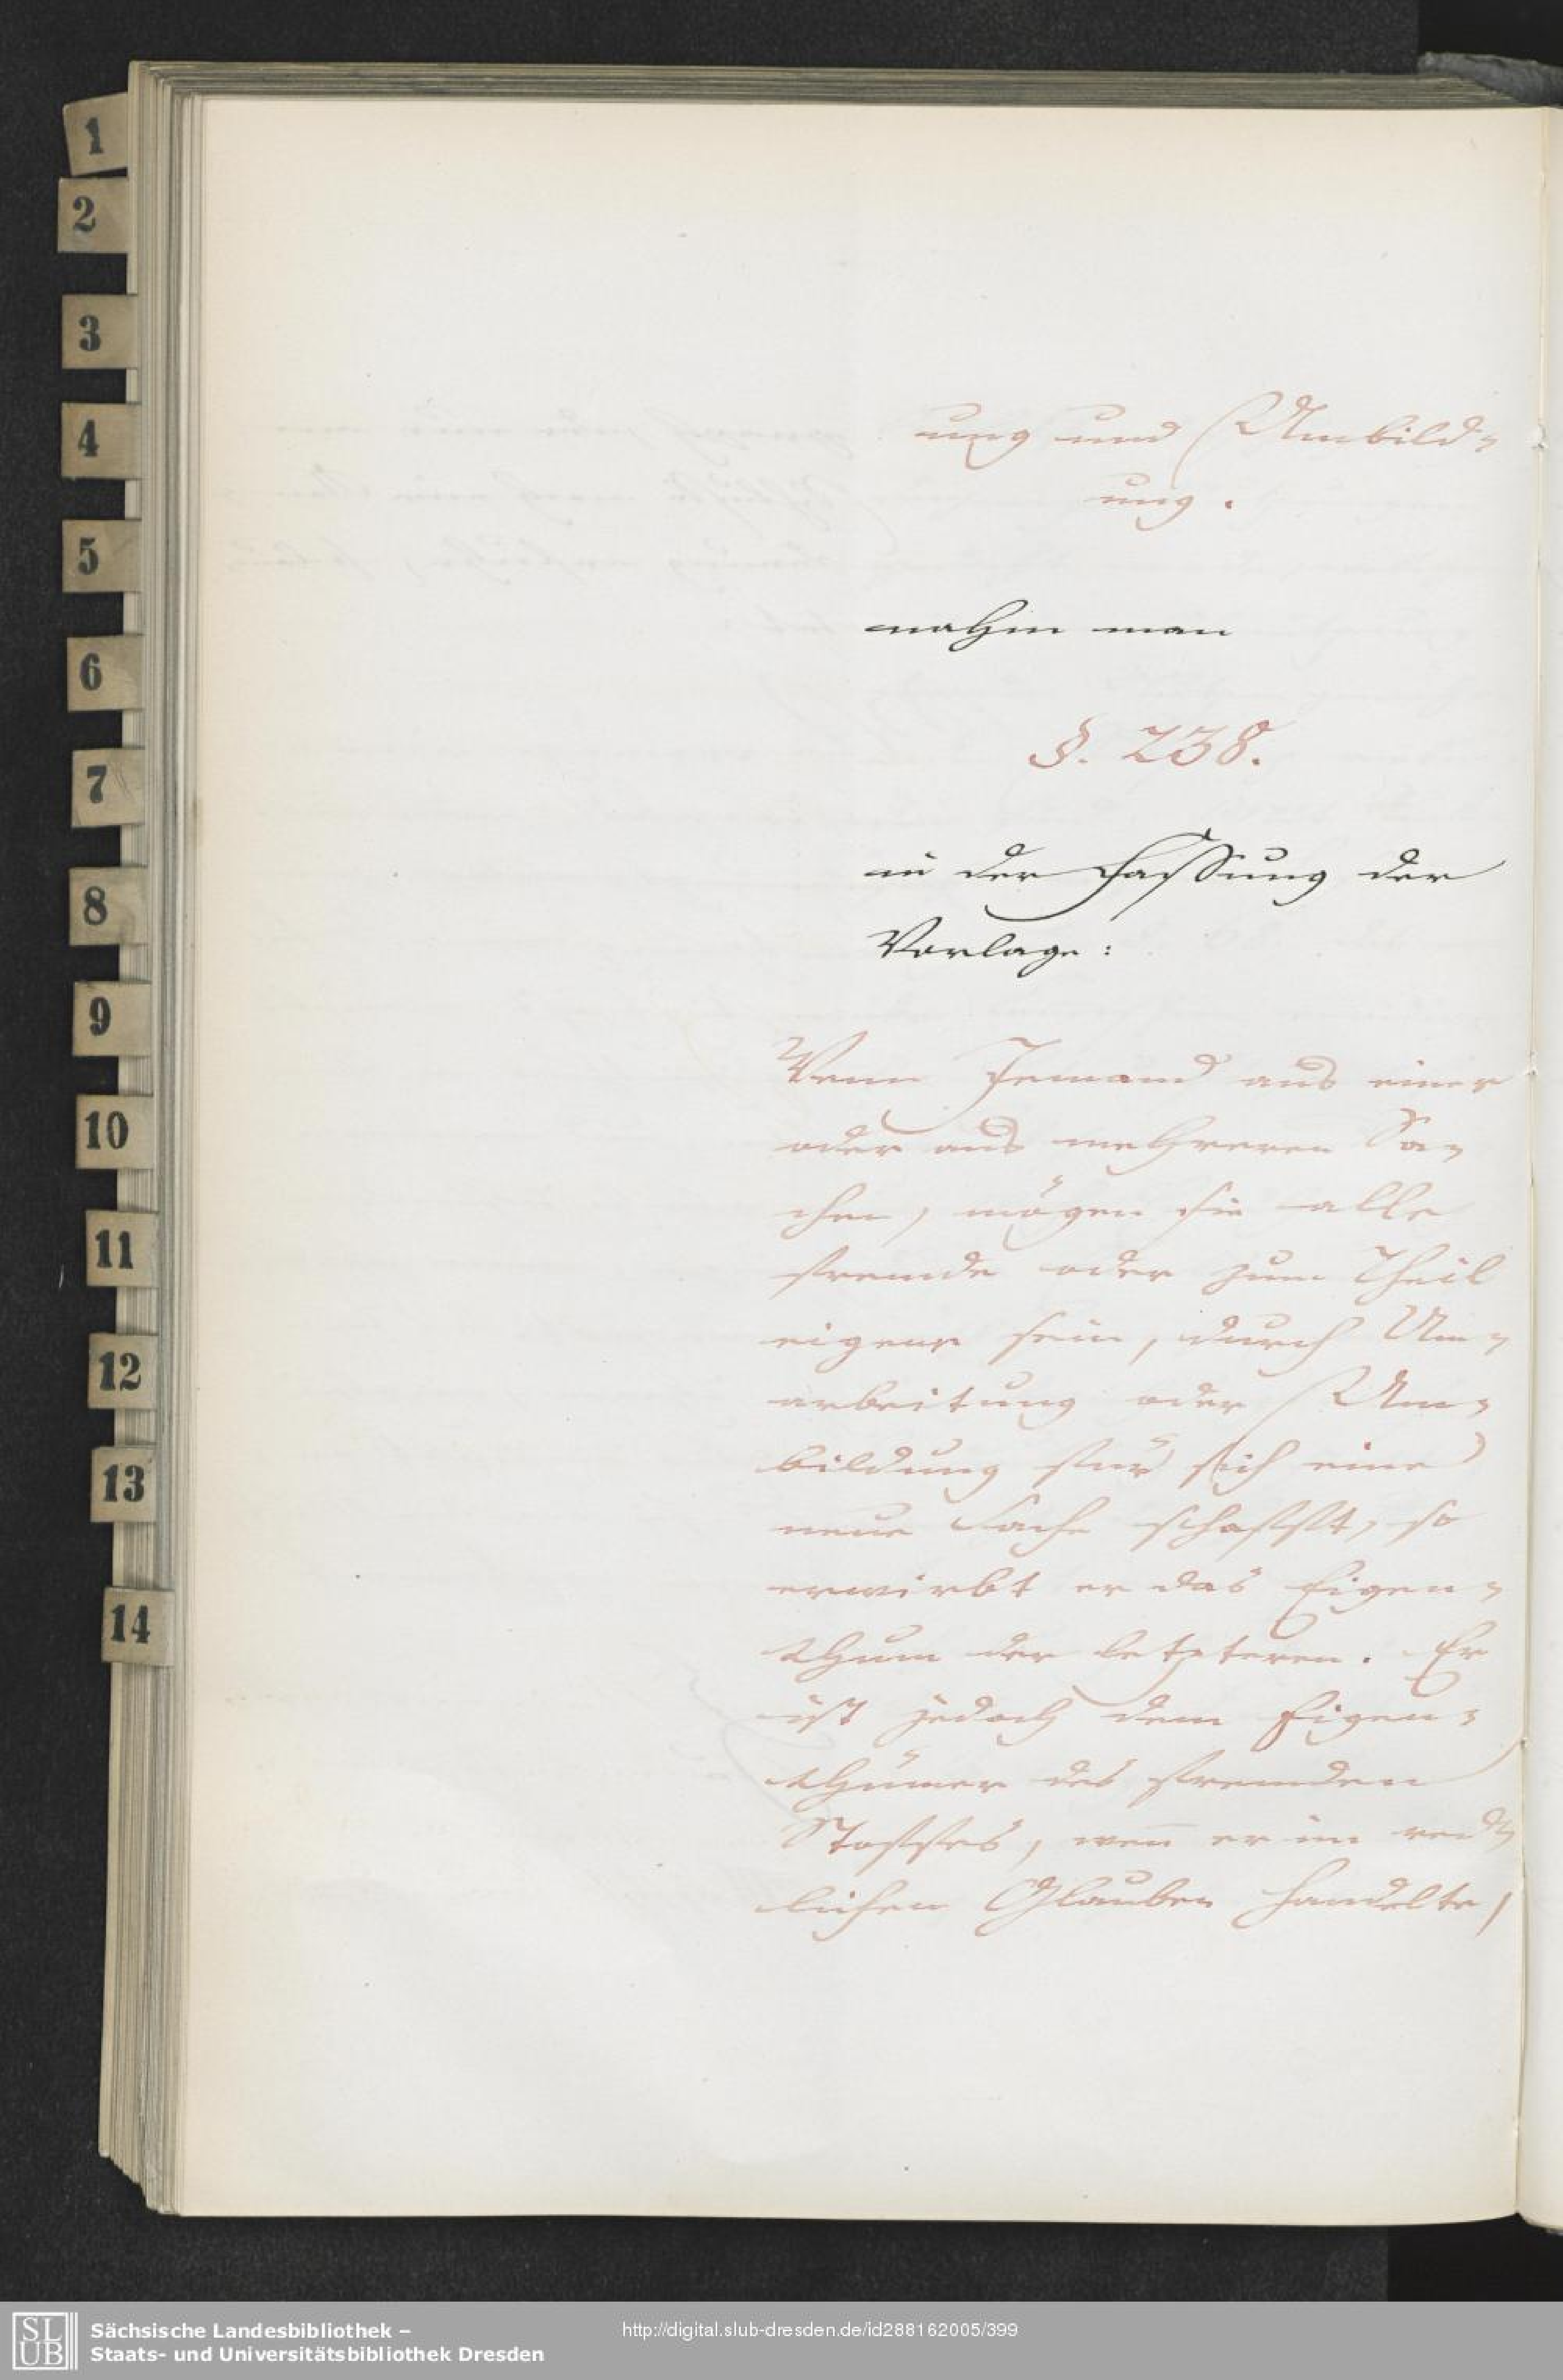 1
2
3
4
5
6
7
8
9
10
11
12
13
14
ung und Umbild-
ung.
nahm man
§. 238.
in der Fassung der
Vorlage:
Wenn Jemand aus einer
oder aus mehreren Sa-
chen, mögen sie alle
fremde oder zum Theil
eigene sein, durch Um-
arbeitung oder Um-
bildung für sich eine
neue Sache schafft, so
erwirbt er das Eigen-
thum der letzteren. Er
ist jedoch dem Eigen-
thümer des fremden
Stoffes, wen̄ er im red-
lichen Glauben handelte,
SLUB
Sächsische Landesbibliothek –
Staats- und Universitätsbibliothek Dresden
http://digital.slub-dresden.de/id288162005/399